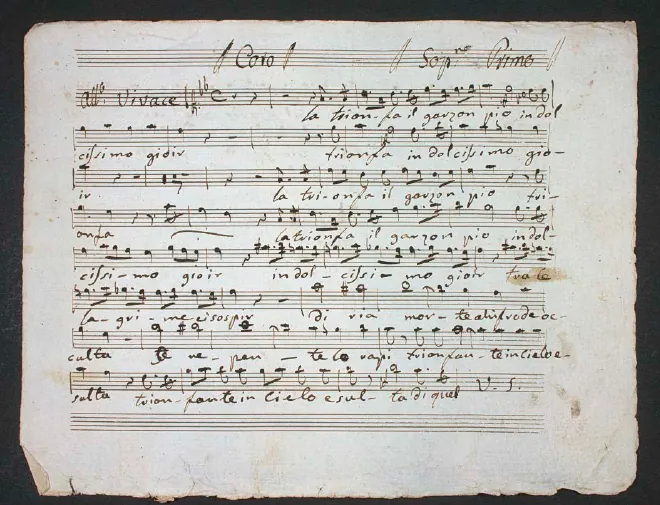 Coro Sop.no Primo
All.o Vivace
la trion-fa il garzon pio in dol
cissimo gioir trionfa in dolcissimo gio-
ir. la tri-onfa il garzon pio tri-
onfa la trionfa il garzon pio in dol
cissi-mo gioir in dol-cissi-mo gioir tra le
la-gri-me e i sospir di ria mor-te
culta te ne-pen-te lo rapi trionfan-te in cielo e-
sulta trion-fante in Cielo esul-ta di quel
V. S.